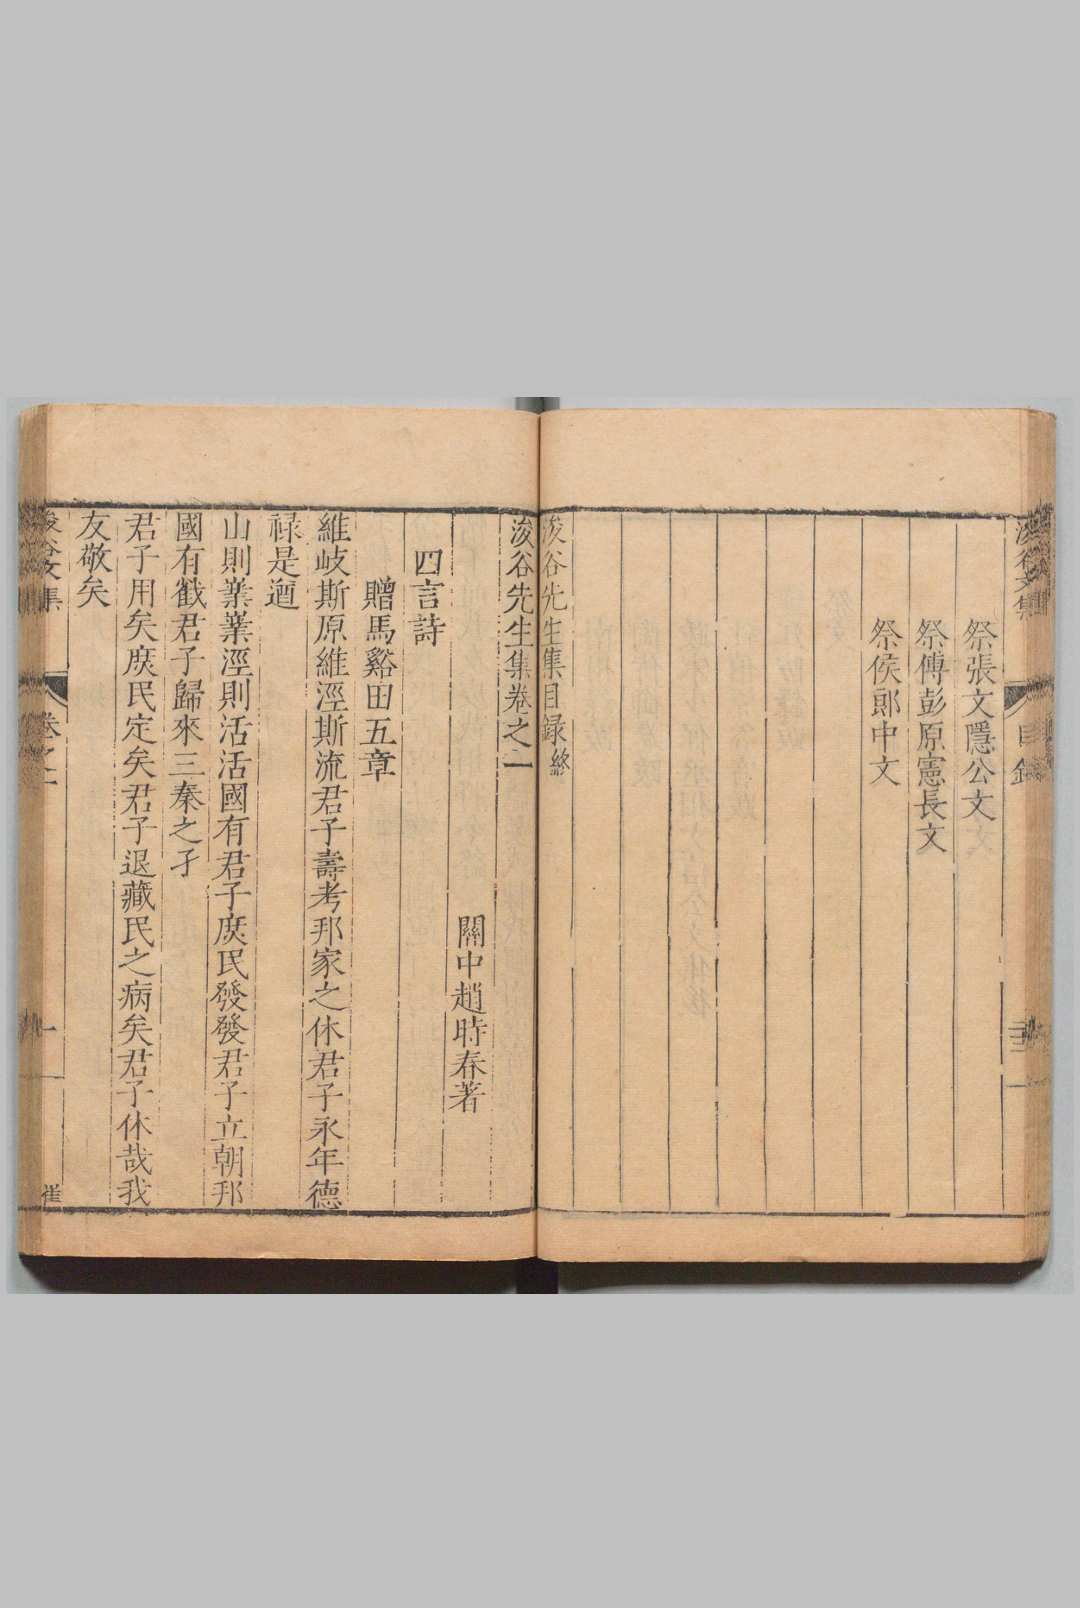 祭張文隱公文
祭傅彭原憲長文
祭侯郎中文
浚谷先生集目録終
浚谷先生集卷之一
關中趙時春著
四言詩
贈馬谿田五章
維岐斯原維涇斯流君子壽考邦家之休君子永年德
禄是遒
山則業業涇則活活國有君子庻民發發君子立朝邦
國有戳君子歸來三秦之孑
君子用矣庻民定矣君子退藏民之病矣君子休哉我
友敬矣
浚谷文集
卷之一
一
崔